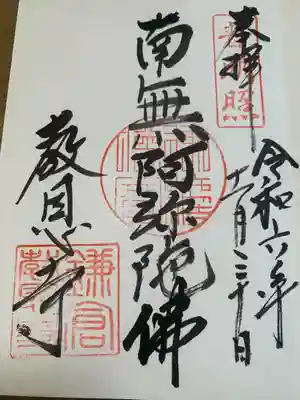 奉拝
令和六年
月 十日
南無阿弥陀佛
教恩寺
鎌倉